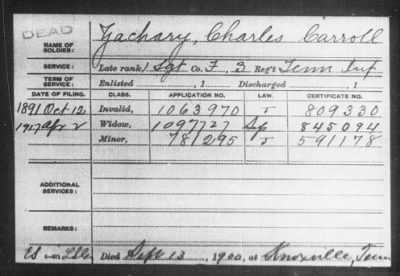 DEAD
NAME OF SOLDIER: Zachary, Charles Carroll
SERVICE: Late rank, Sgt Co. F, 3 Reg't Tenn Inf
TERM OF SERVICE: Enlisted , 1 Discharged , 1
DATE OF FILING. CLASS. APPLICATION NO. LAW. CERTIFICATE NO.
1891 Oct 12 Invalid, 1063970 809330
1917 Apr 2 Widow, 1097727 845094
Minor, 781295 591178
ADDITIONAL SERVICES:
REMARKS:
Died Sept 13, 1900, at Knoxville, Tenn